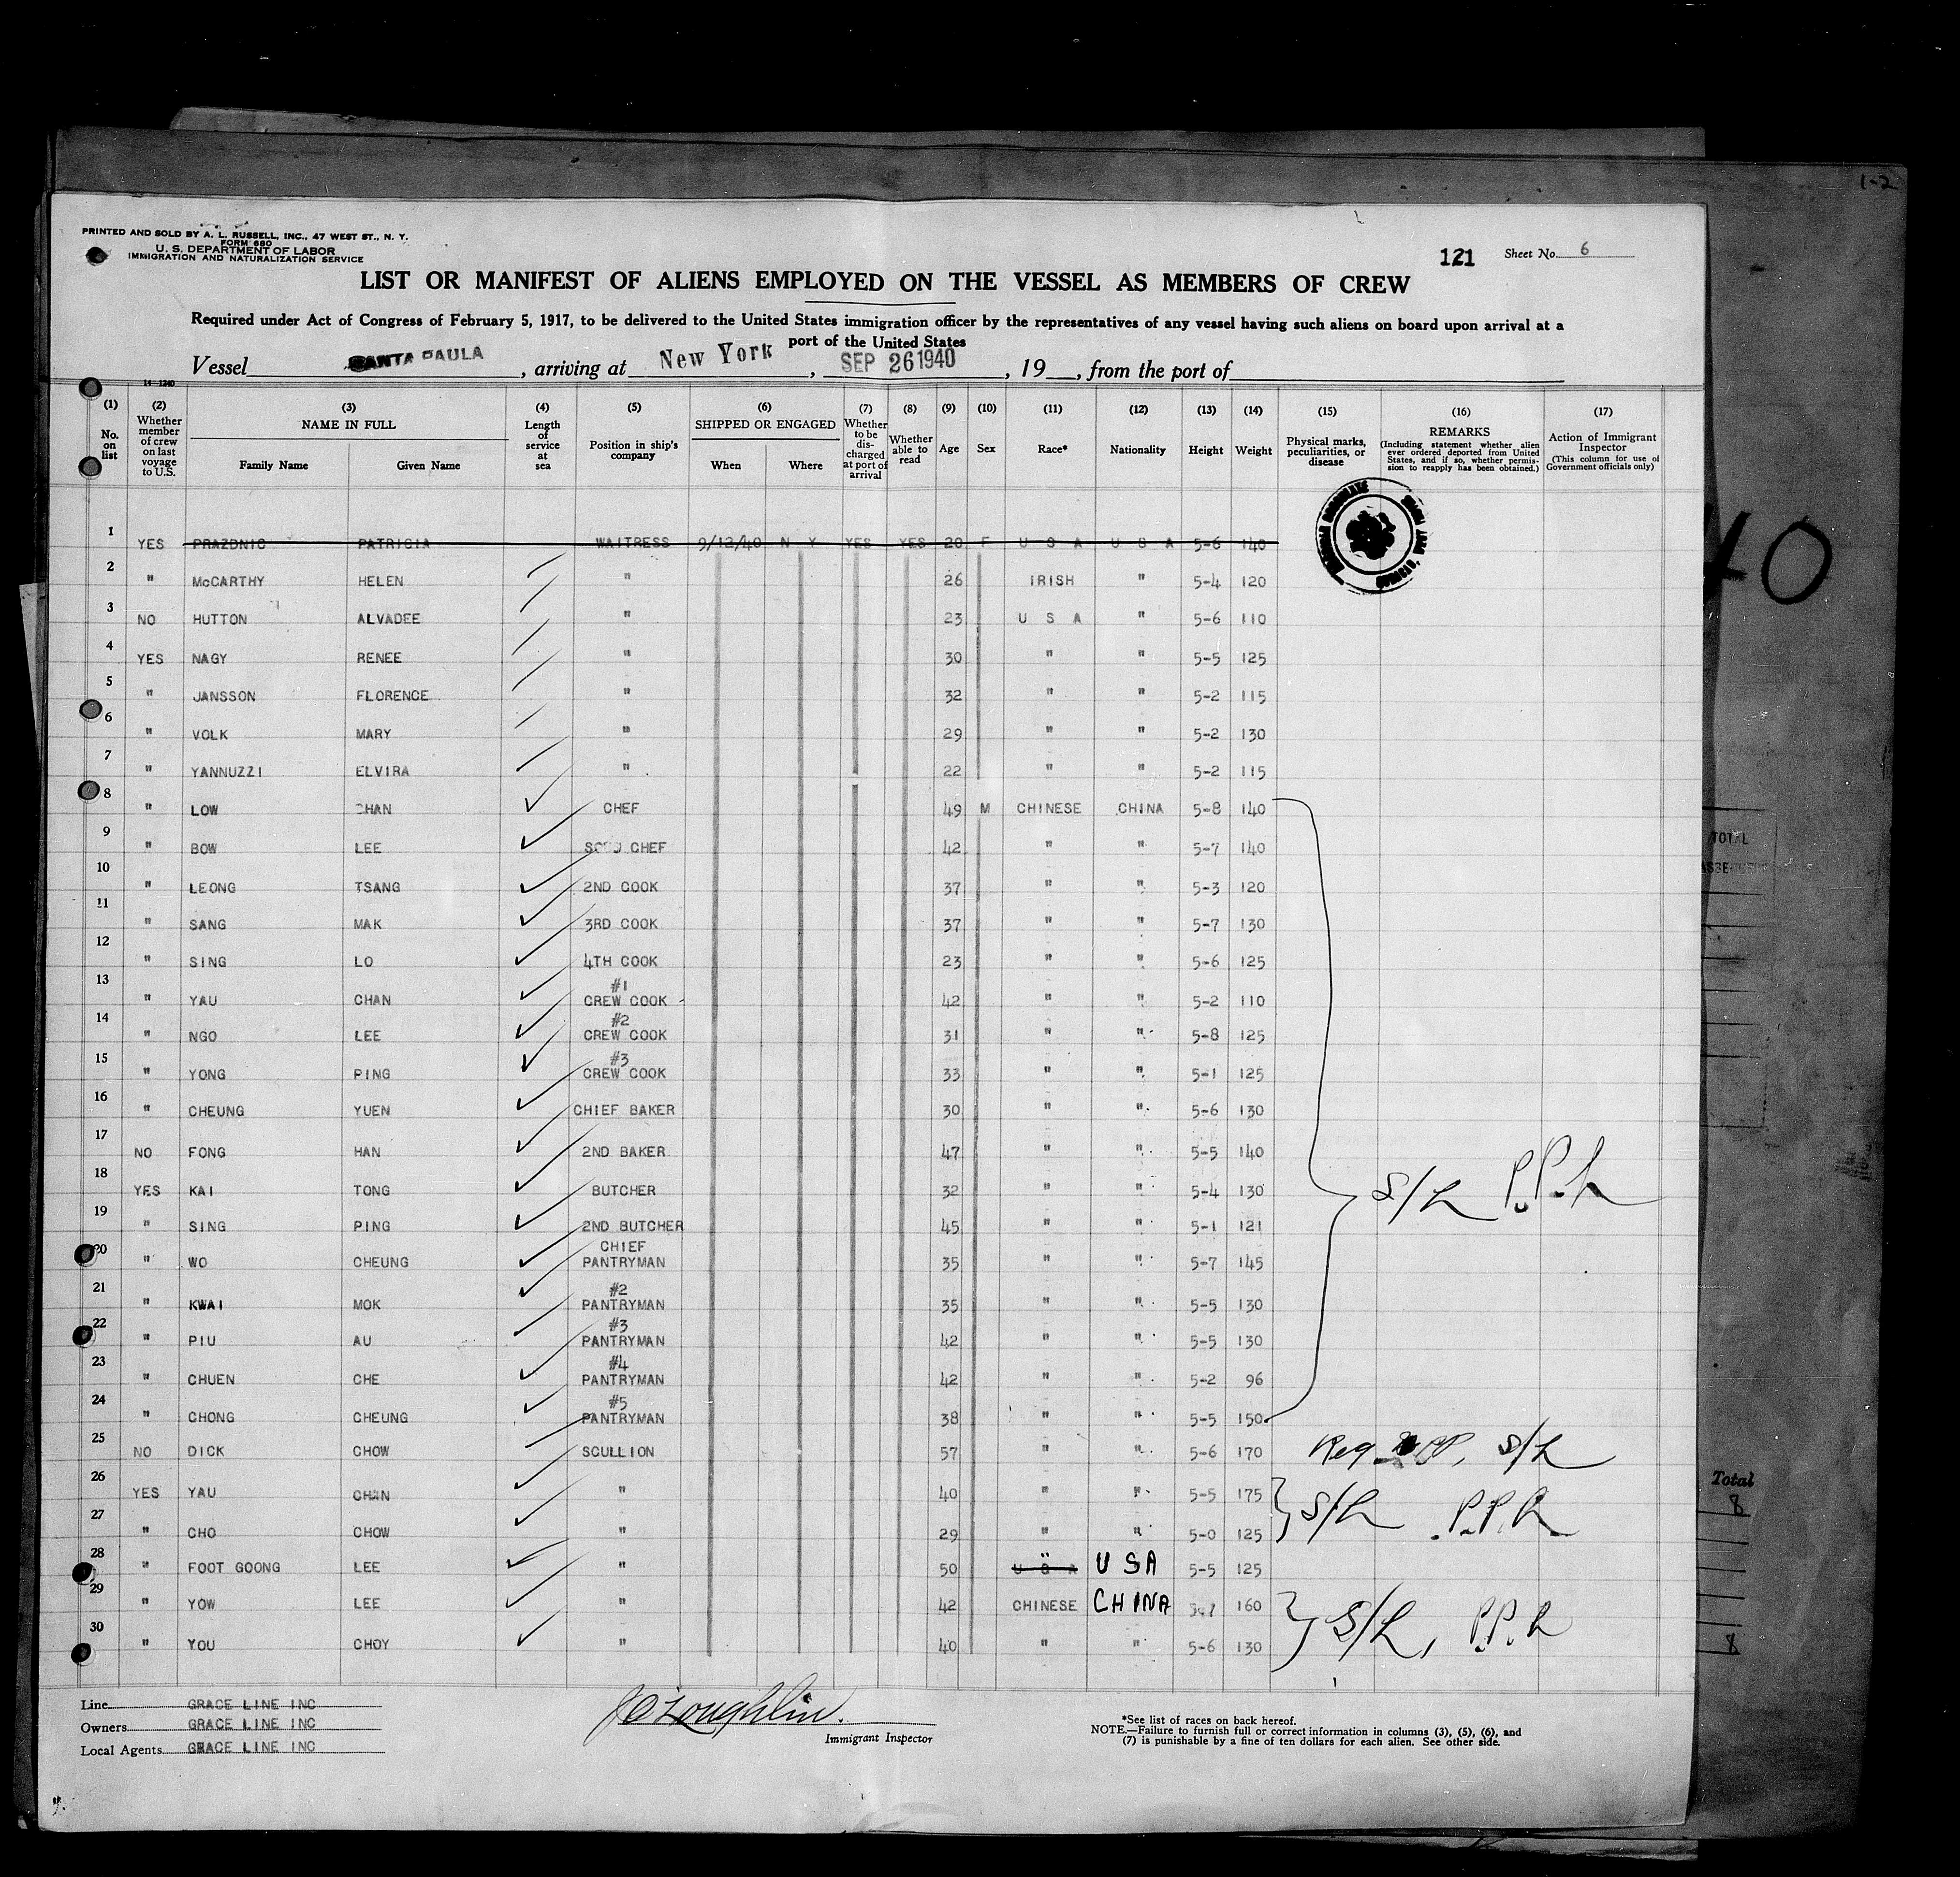 1-2
PRINTED AND SOLD BY A. L. RUSSELL, INC., 47 WEST ST., N. Y.
FORM 680
U. S. DEPARTMENT OF LABOR
IMMIGRATION AND NATURALIZATION SERVICE
121 Sheet No. 6
LIST OR MANIFEST OF ALIENS EMPLOYED ON THE VESSEL AS MEMBERS OF CREW
Required under Act of Congress of February 5, 1917, to be delivered to the United States immigration officer by the representatives of any vessel having such aliens on board upon arrival at a
port of the United States
Vessel SANTA PAULA, arriving at New York, SEP 26 1940, 19__, from the port of
14-1240
(1) No. on list
(2) Whether member of crew on last voyage to U.S.
(3) NAME IN FULL Family Name Given Name
(4) Length of service at sea
(5) Position in ship's company
(6) SHIPPED OR ENGAGED When Where
(7) Whether to be discharged at port of arrival
(8) Whether able to read
(9) Age
(10) Sex
(11) Race*
(12) Nationality
(13) Height
(14) Weight
(15) Physical marks, peculiarities, or disease
(16) REMARKS (Including statement whether alien ever ordered deported from United States, and if so, whether permission to reapply has been obtained.)
(17) Action of Immigrant Inspector (This column for use of Government officials only)
1 YES PRAZDNIC PATRICIA WAITRESS 9/12/40 N Y YES YES 20 F U S A U S A 5-6 140
2 " McCARTHY HELEN " 26 IRISH " 5-4 120
3 NO HUTTON ALVADEE " 23 U S A " 5-6 110
4 YES NAGY RENEE " 30 " " 5-5 125
5 " JANSSON FLORENCE " 32 " " 5-2 115
6 " VOLK MARY " 29 " " 5-2 130
7 " YANNUZZI ELVIRA " 22 " " 5-2 115
8 " LOW CHAN CHEF 49 M CHINESE CHINA 5-8 140
9 " BOW LEE SOUU CHEF 42 " " 5-7 140
10 " LEONG TSANG 2ND COOK 37 " " 5-3 120
11 " SANG MAK 3RD COOK 37 " " 5-7 130
12 " SING LO 4TH COOK 23 " " 5-6 125
13 " YAU CHAN #1 CREW COOK 42 " " 5-2 110
14 " NGO LEE #2 CREW COOK 31 " " 5-8 125
15 " YONG PING #3 CREW COOK 33 " " 5-1 125
16 " CHEUNG YUEN CHIEF BAKER 30 " " 5-6 130
17 NO FONG HAN 2ND BAKER 47 " " 5-5 140
18 YES KAI TONG BUTCHER 32 " " 5-4 130 S/L P.P.h
19 " SING PING 2ND BUTCHER 45 " " 5-1 121
20 " WO CHEUNG CHIEF PANTRYMAN 35 " " 5-7 145
21 " KWAI MOK #2 PANTRYMAN 35 " " 5-5 130
22 " PIU AU #3 PANTRYMAN 42 " " 5-5 130
23 " CHUEN CHE #4 PANTRYMAN 42 " " 5-2 96
24 " CHONG CHEUNG #5 PANTRYMAN 38 " " 5-5 150
25 NO DICK CHOW SCULLION 57 " " 5-6 170 Reg PP, S/L
26 YES YAU CHAN " 40 " " 5-5 175 S/L P.P.h
27 " CHO CHOW " 29 " " 5-0 125
28 " FOOT GOONG LEE " 50 U S A " USA 5-5 125
29 " YOW LEE " 42 CHINESE CHINA 160 S/L, P.P.h
30 " YOU CHOY " 40 " " 5-6 130
Line GRACE LINE INC
Owners GRACE LINE INC
Local Agents GRACE LINE INC
J O'Loughlin.
Immigrant Inspector
*See list of races on back hereof.
NOTE.—Failure to furnish full or correct information in columns (3), (5), (6), and
(7) is punishable by a fine of ten dollars for each alien. See other side.
40
TOTAL
Total
8
8